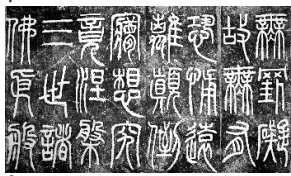 無罣礙
故無有
恐怖遠
離顛倒
夢想究
竟涅槃
三世諸
佛依般